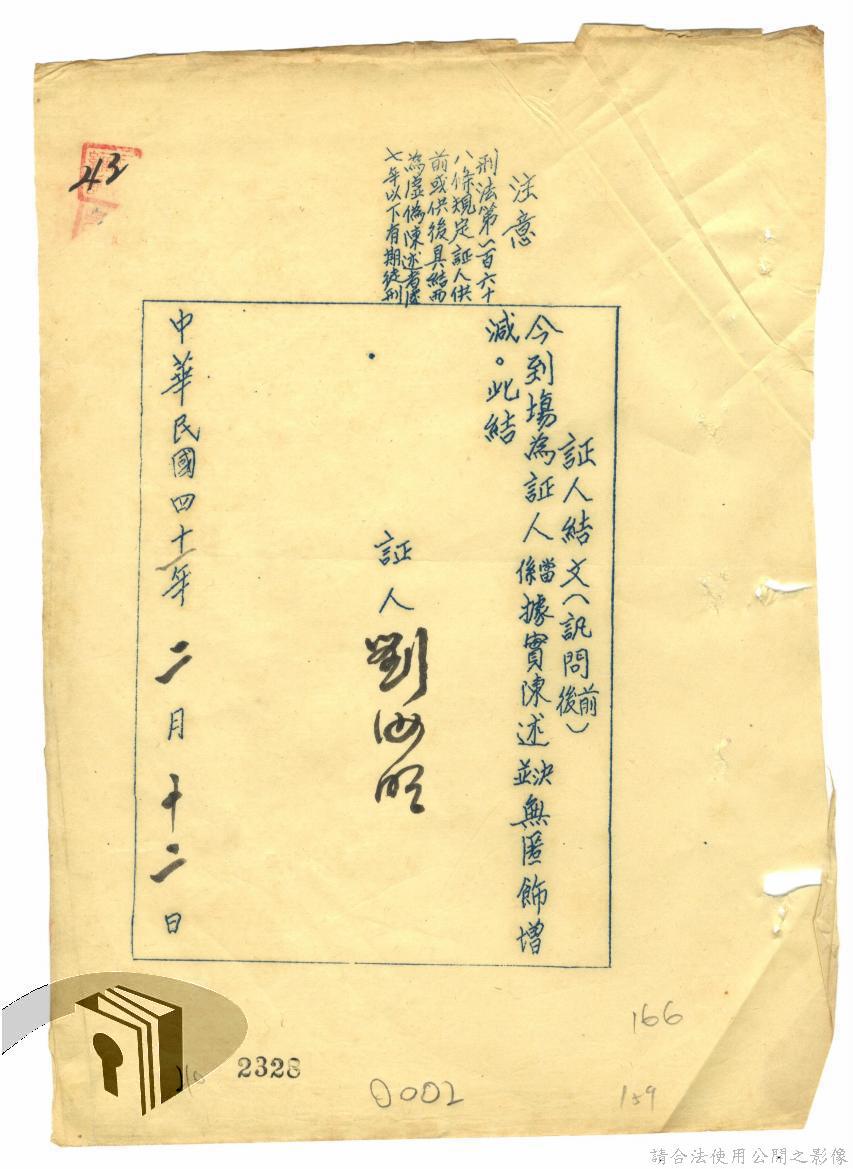 43
注意
刑法第一百六十
八條規定証人供
前或供後具結而
為虛偽陳述者處
七年以下有期徒刑
証人結文(訊問前後)
今到場為証人當係據實陳述決並無匿飾增
減。此結
証人 劉
中華民國四十一年二月十二日
166
2328
0002
159
請合法使用公開之影像